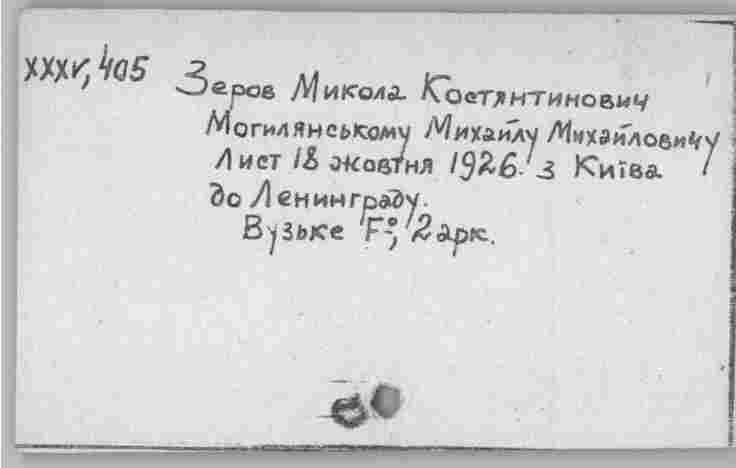 XXXV, 405 Зеров Микола Костянтинович
Могилянському Михайлу Михайловичу
Лист 18 жовтня 1926. з Київа
до Ленинграду.
Вузьке F°, 2 арк.